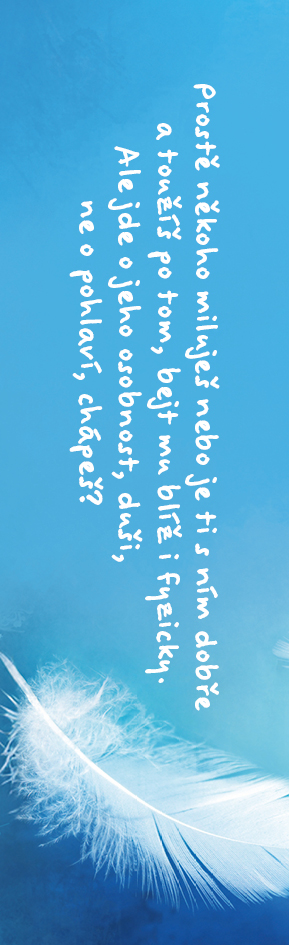 Prostě někoho miluješ nebo je ti s ním dobře
a toužíš po tom, bejt mu blíž i fyzicky.
Ale jde o jeho osobnost, duši,
ne o pohlaví, chápeš?